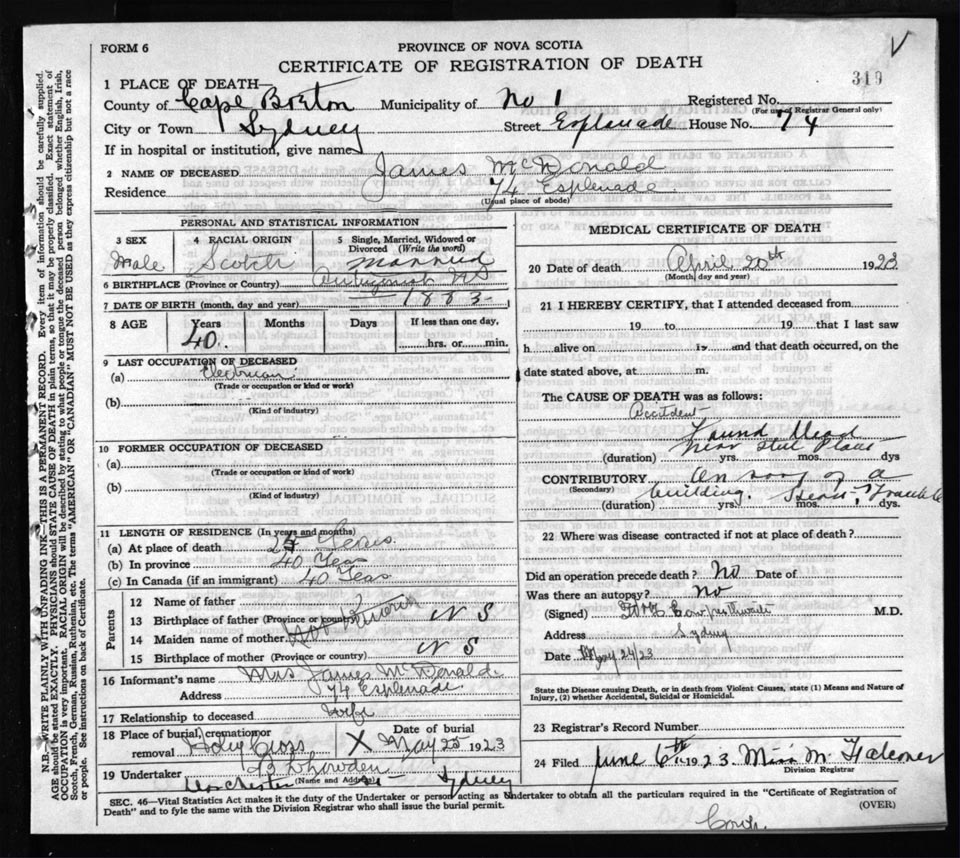 FORM 6
PROVINCE OF NOVA SCOTIA
CERTIFICATE OF REGISTRATION OF DEATH
319
1 PLACE OF DEATH—
County of Cape Breton Municipality of No 1 Registered No.
(For use of Registrar General only)
City or Town Sydney Street Esplanade House No. 74
If in hospital or institution, give name
2 NAME OF DECEASED James McDonald
Residence 74 Esplenade
(Usual place of abode)
PERSONAL AND STATISTICAL INFORMATION
3 SEX Male
4 RACIAL ORIGIN Scotch
5 Single, Married, Widowed or Divorced (Write the word) Married
6 BIRTHPLACE (Province or Country) NS
7 DATE OF BIRTH (month, day and year) 1883
8 AGE Years 40 Months Days If less than one day, hrs. or min.
9 LAST OCCUPATION OF DECEASED
(a)
(Trade or occupation or kind or work)
(b)
(Kind of industry)
10 FORMER OCCUPATION OF DECEASED
(a)
(Trade or occupation or kind of work)
(b)
(Kind of industry)
11 LENGTH OF RESIDENCE (In years and months)
(a) At place of death
(b) In province 40 Yeas
(c) In Canada (if an immigrant) 40 Yeas
Parents
12 Name of father
13 Birthplace of father (Province or country) N S
14 Maiden name of mother
15 Birthplace of mother (Province or country) N S
16 Informant's name Mrs James McDonald
Address 74 Esplenade
17 Relationship to deceased wife
18 Place of burial, cremation or removal Holy Cross
Date of burial May 25 1923
19 Undertaker
(Name and Address)
Dorchester St- Sydney
MEDICAL CERTIFICATE OF DEATH
20 Date of death April 20th 1923
(Month, day and year)
21 I HEREBY CERTIFY, that I attended deceased from
19 to 19 that I last saw
h alive on 19 and that death occurred, on the
date stated above, at m.
The CAUSE OF DEATH was as follows:
Accident
Found Dead
near Steel Plant
(duration) yrs. mos. dys
CONTRIBUTORY
(Secondary)
building.
(duration) yrs. mos. dys.
22 Where was disease contracted if not at place of death?
Did an operation precede death? No Date of
Was there an autopsy? No
(Signed) M.D.
Address Sydney
Date May 24/23
State the Disease causing Death, or in death from Violent Causes, state (1) Means and Nature of
Injury, (2) whether Accidental, Suicidal or Homicidal.
23 Registrar's Record Number
24 Filed June 6th 1923 Miss M Falconer
Division Registrar
SEC. 46—Vital Statistics Act makes it the duty of the Undertaker or person acting as Undertaker to obtain all the particulars required in the "Certificate of Registration of
Death" and to fyle the same with the Division Registrar who shall issue the burial permit.
(OVER)
N.B.—WRITE PLAINLY WITH UNFADING INK—THIS IS A PERMANENT RECORD. Every item of information should be carefully supplied.
AGE should be stated EXACTLY. PHYSICIANS should STATE CAUSE OF DEATH in plain terms, so that it may be properly classified. Exact statement of
OCCUPATION is very important. RACIAL ORIGIN will be described by stating to what people or tongue the deceased person belonged whether English, Irish,
Scotch, French, German, Russian, Ruthenian, etc. The terms "AMERICAN" OR "CANADIAN" MUST NOT BE USED as they express citizenship but not a race
or people. See instructions on back of Certificate.